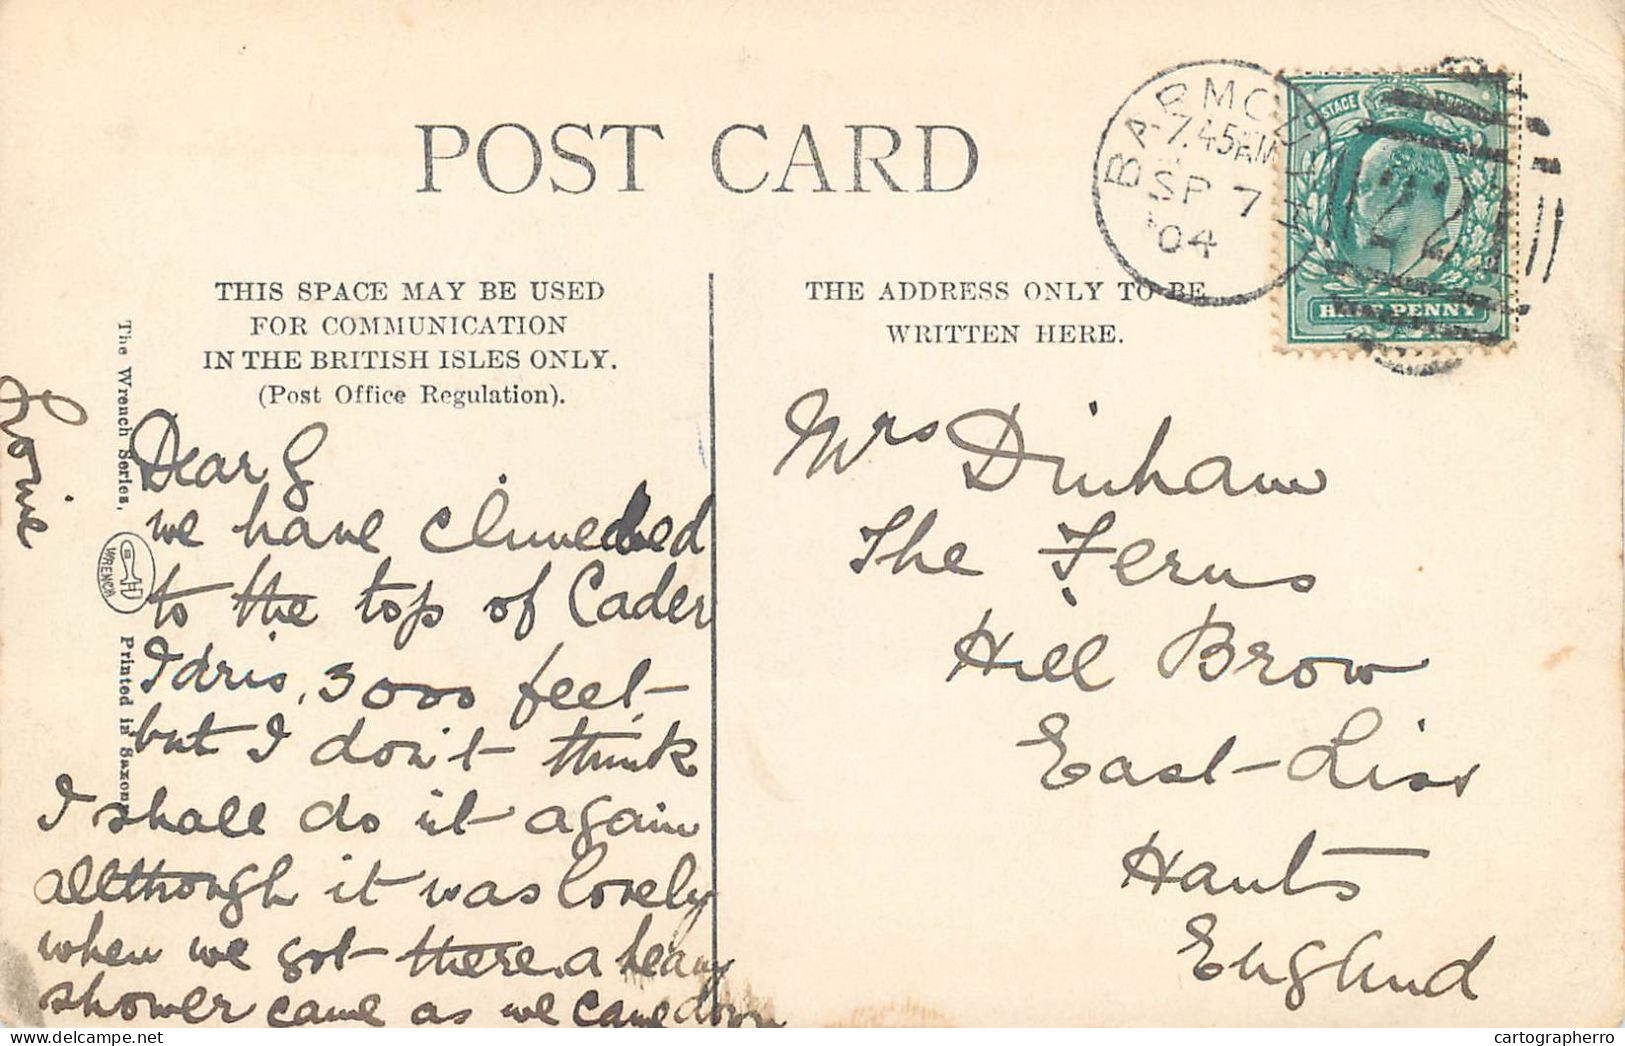 POST CARD
THIS SPACE MAY BE USED
FOR COMMUNICATION
IN THE BRITISH ISLES ONLY.
(Post Office Regulation).
THE ADDRESS ONLY TO BE
WRITTEN HERE.
BARMOUTH
7.45AM
SP 7
04
POSTAGE
HALF PENNY
The Wrench Series.
WRENCH
Printed in Saxony
Dear G
we have climbed
to the top of Cader
Idris, 3000 feet
but I don't think
I shall do it again
although it was lovely
when we got there. a heavy
shower came as we came down
Mrs Dinham
The Ferns
Hill Brow
East Liss
Hants
England
cartographerro